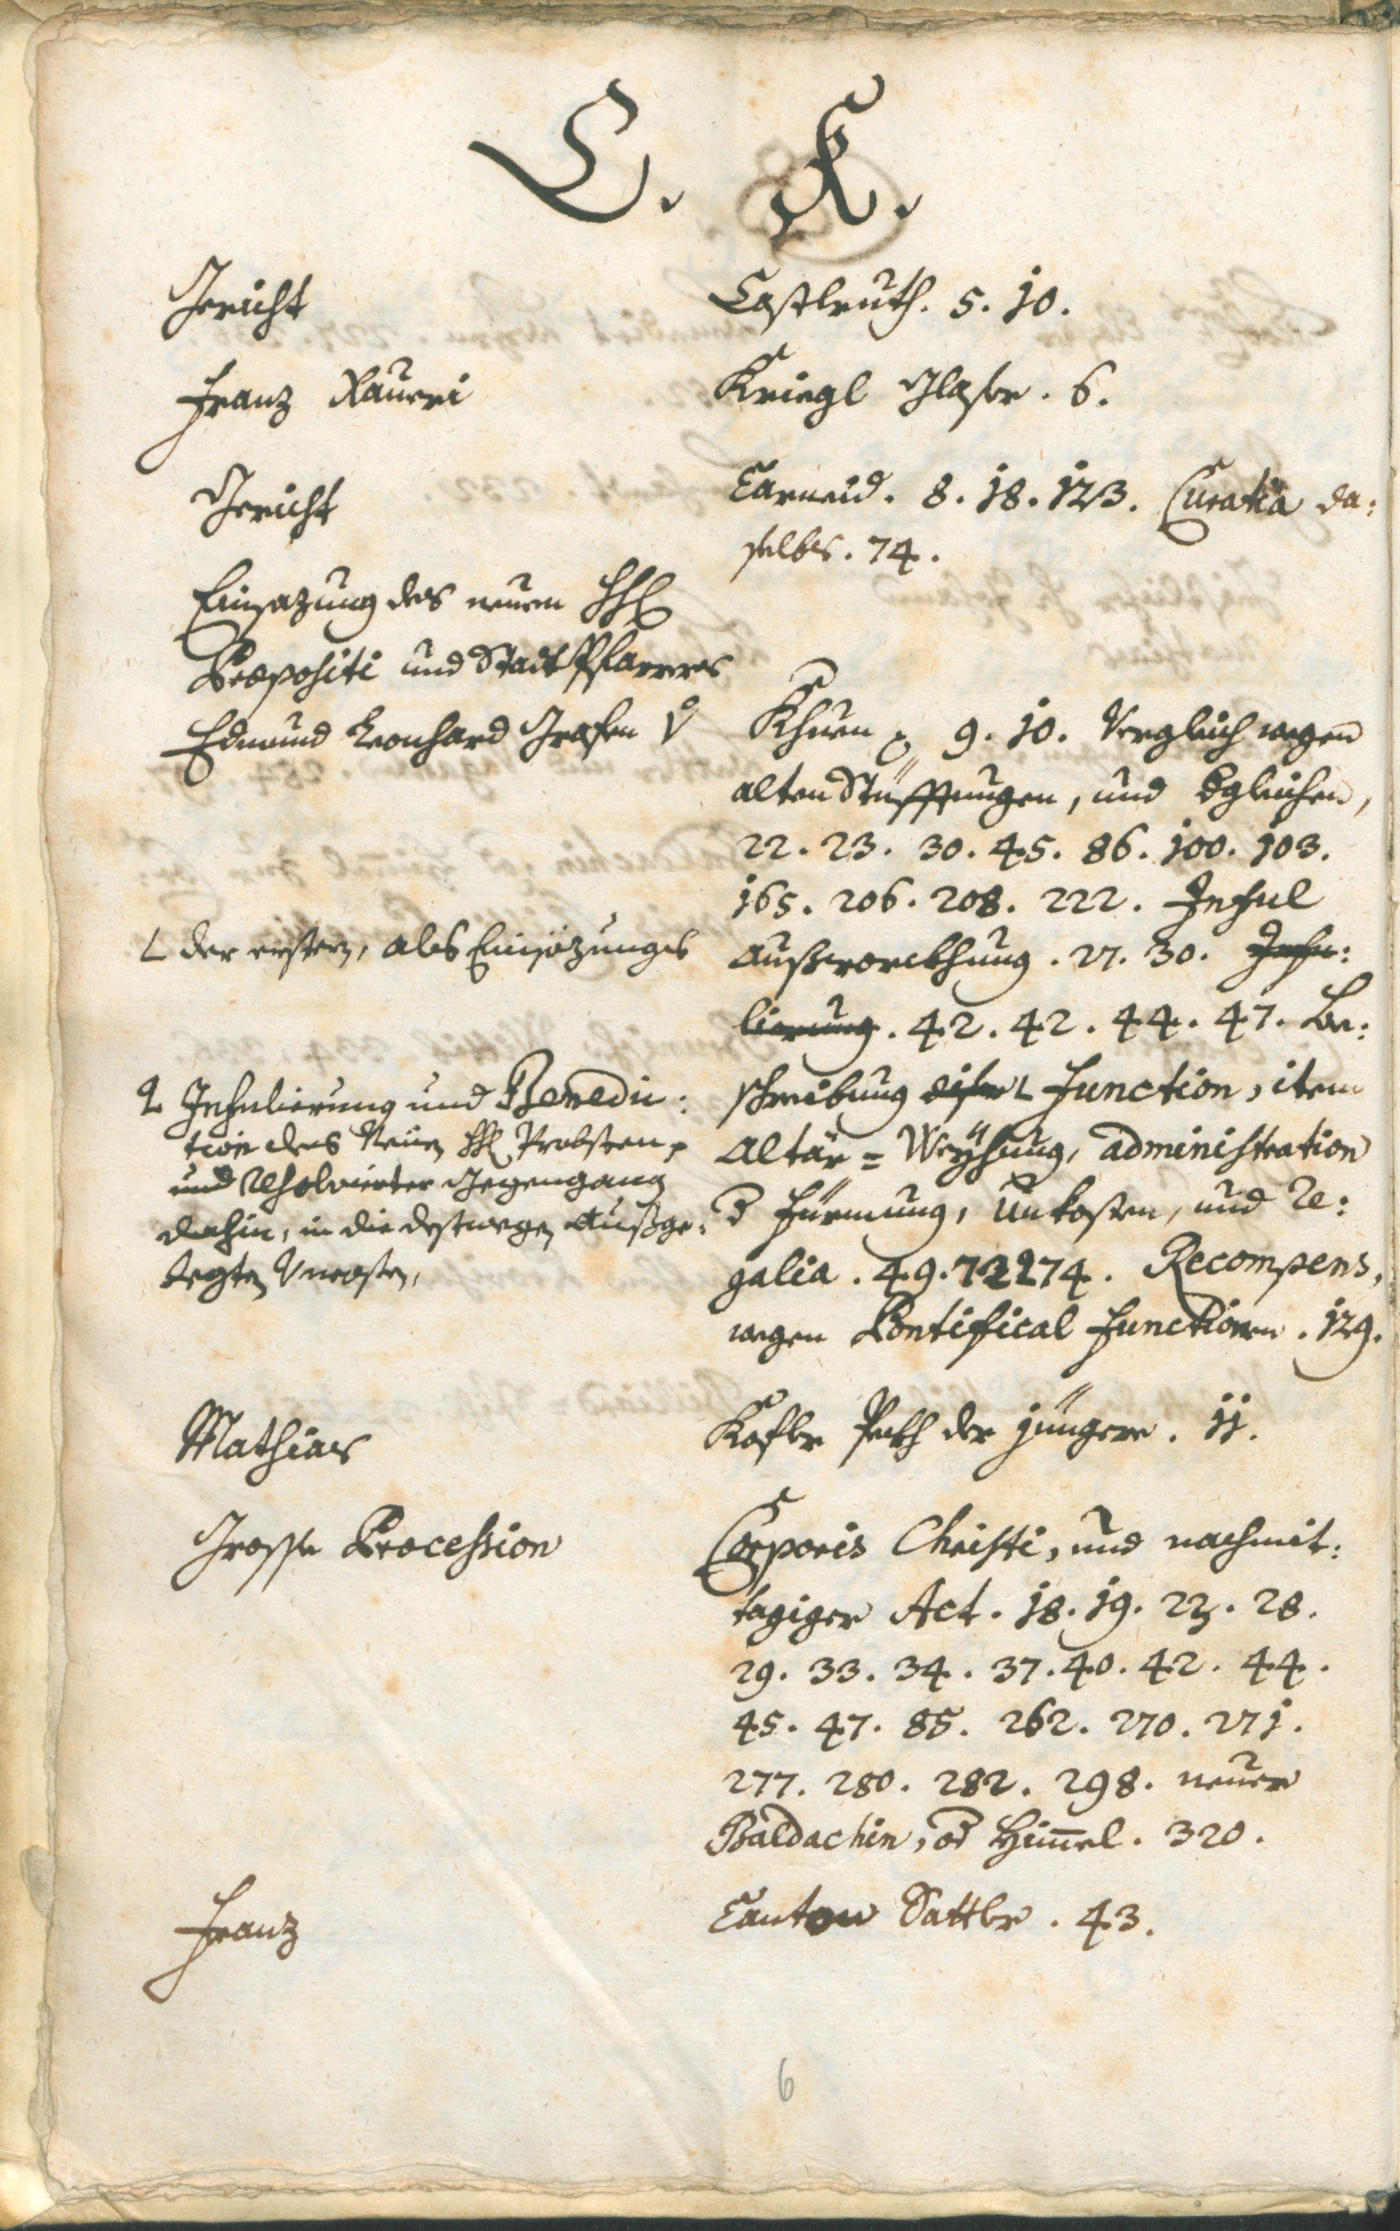 C. K.
Gericht
Castlruth. 5. 10.
Franz Xaueri
Kriegl Glaser. 6.
Gericht
Carneid. 8. 18. 123. Curatia da:
selbs. 74.
Einsazung des neuen
Præpositi und StadtPfarrers
Edmund Leonhard Grafen v
Khuen 9. 10. Verglich wegen
alten Stüfftungen, und dgleichen,
22. 23. 30. 45. 86. 100. 103.
165. 206. 208. 222. Inful
Außworckhung. 27. 30. Infu:
lierung. 42. 42. 44. 47. Be:
schreibung diser Function, item
Altär=Weÿhung, administration
d Fürmung, Unkosten, und Re:
galia. 49. 72 274. Recompens,
wegen Pontifical Functionen. 129.
der erstern, als Einsözungs
Infulierung und Benedic:
tion des Neüen Probsten,
und Gegengang
dahin, in die destwegen Außge:
legten Uncosten,
Mathias
Kofler Peckh der jüngere. 11.
Grosse Procession
Corporis Christi, und nachmit:
tagiger Act. 18. 19. 23. 28.
29. 33. 34. 37. 40. 42. 44.
45. 47. 85. 262. 270. 271.
277. 280. 282. 298. neuer
Baldachin, od Himmel. 320.
Franz
Canton Sattler. 43.
6